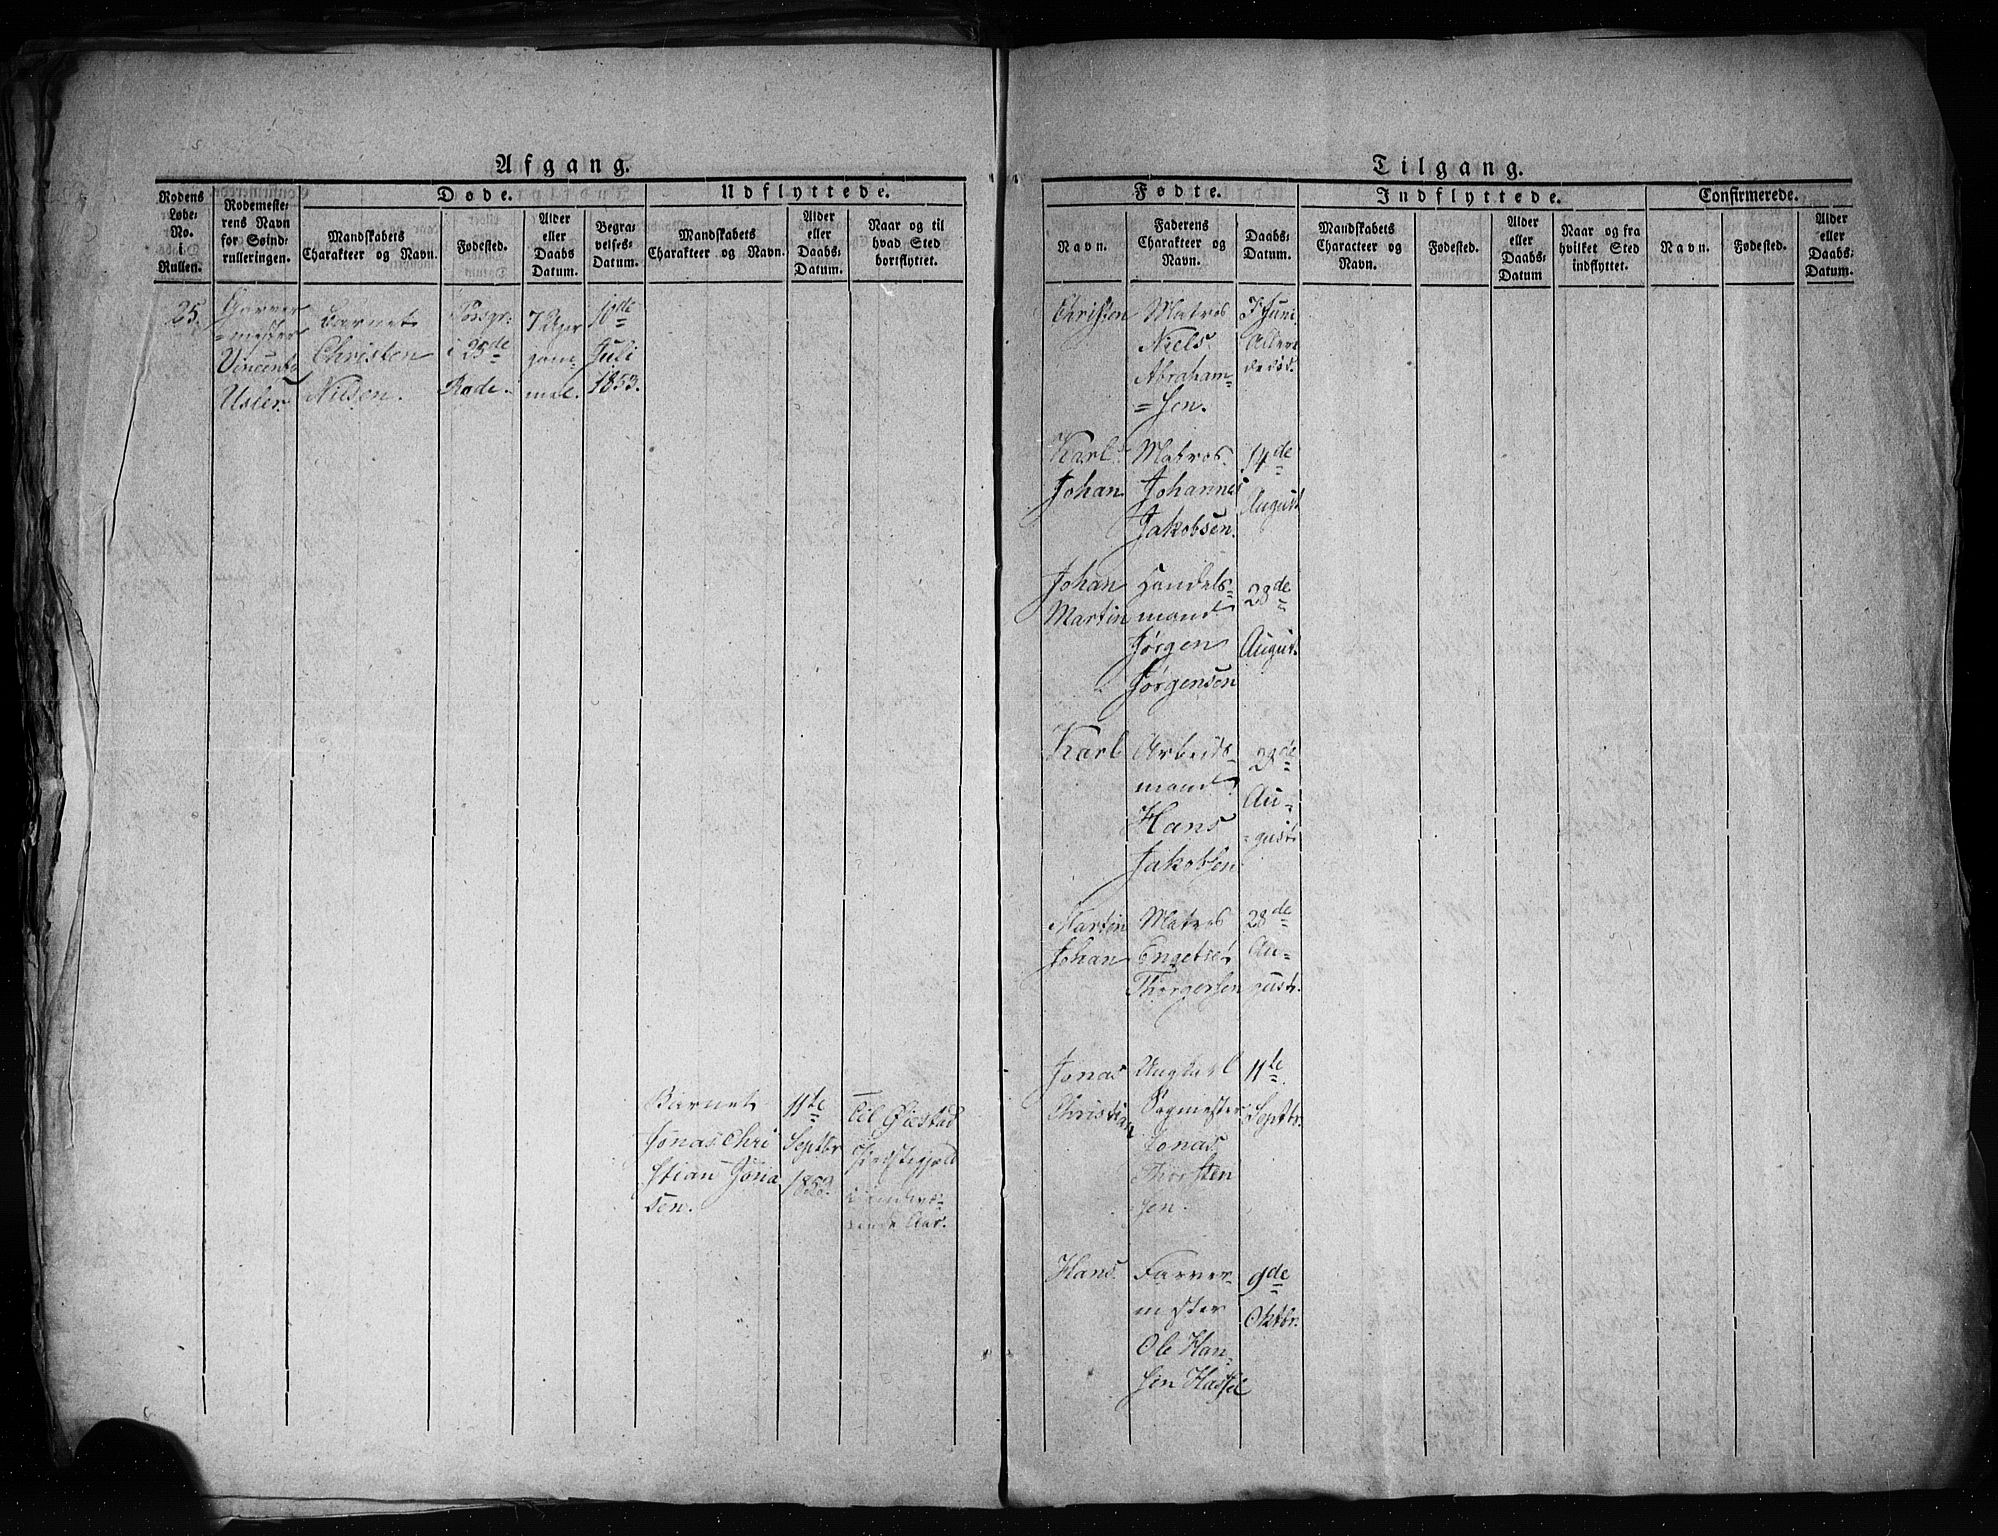 Afgang.
Rodens Løbe-No. i Rullen.
Rodemesterens Navn for Søindrulleringen.
Døde.
Mandskabets Charakteer og Navn.
Fødested.
Alder eller Daabs Datum.
Begravelses-Datum.
Udflyttede.
Mandskabets Charakteer og Navn.
Alder eller Daabs-Datum.
Naar og til hvad Sted bortflyttet.
25.
Garver
=mester
Vincents
Usler.
Barnet
Christen
Nilsen.
Porsgr:
i 25de
Rode.
7 Uger
gam-
mel.
10de
Juli
1853.
Barnet
Jonas Chri
stian Jona
sen.
11te
Septbr
1853.
Til
Præstegjeld
Aar.
Tilgang.
Fødte.
Navn.
Faderens Charakteer og Navn.
Daabs-Datum.
Indflyttede.
Mandskabets Characteer og Navn.
Fødested.
Alder eller Daabs-Datum
Naar og fra hvilket Sted indflyttet.
Confirmerede.
Navn.
Fødested.
Alder eller Daabs-Datum.
Christen
Matros
Niels
Abraham-
=sen.
Juni
Karl
Johan
Matros
Johannes
Jakobsen.
14de
August
Johan
Martin
Handels-
mand
Jørgen
Jørgensen
28de
August.
Karl
Arbeids-
mand
Hans
Jakobsen
28de
Au=
=gust
Martin
Johan
Matros
Thorgersen
28de
Au=
gust.
Jonas
Christian
Sagmester
Jonas
Thorsten
sen.
11te
Septbr.
Hans
Farver-
mester
Ole Han-
sen Hassel
9de
Oktbr.